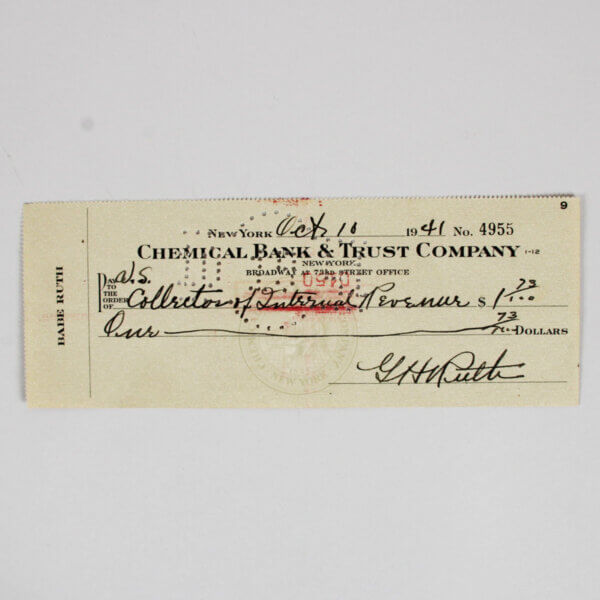 9
NEW YORK Oct 10 1941 No. 4955
CHEMICAL BANK & TRUST COMPANY 1-12
NEW YORK
BROADWAY AT 73RD STREET OFFICE
BABE RUTH
PAY TO THE ORDER OF U.S. Collector of Internal Revenue $ 1 73/100
One 73/100 DOLLARS
G H Ruth